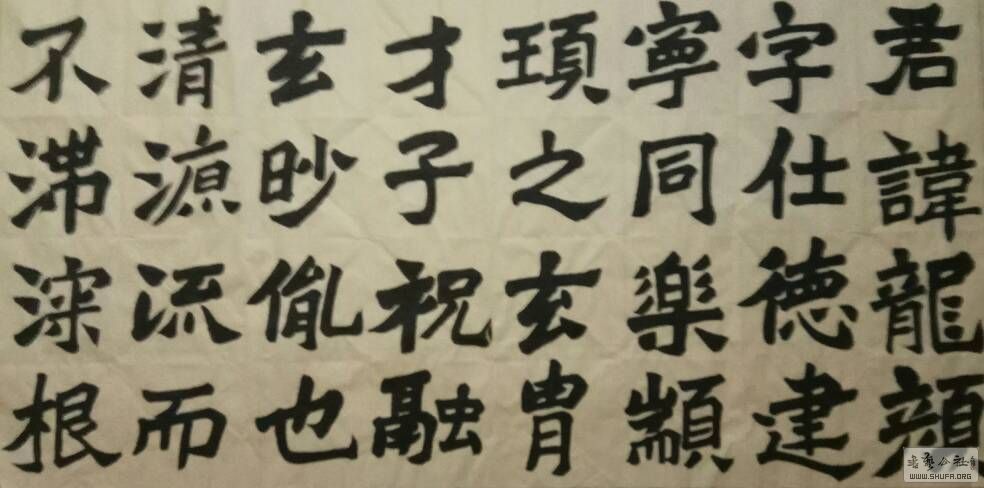 君諱龍顏
字仕德建
寧同樂顓
頊之玄胄
才子祝融
玄眇胤也
清源流而
不滯深根
書藝公社
WWW.SHUFA.ORG